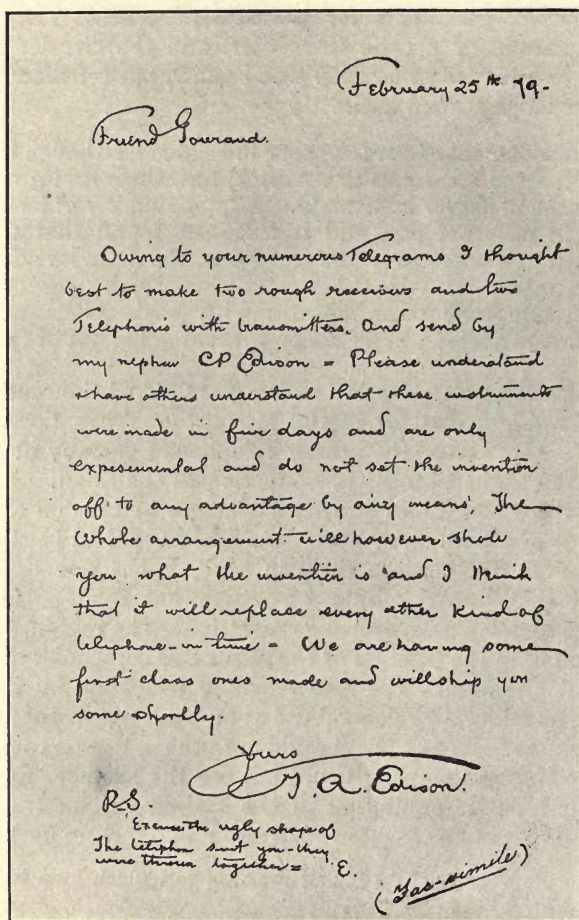 February 25th 79-
Friend Gouraud.
Owing to your numerous Telegrams I thought
best to make two rough receivers and two
Telephonis with transmitters. And send by
my nephew CP Edison = Please understand
& have others understand that these instruments
were made in five days and are only
experimental and do not set the invention
off to any advantage by any means, The
Whole arrangement will however show
you what the invention is and I think
that it will replace every other kind of
telephone-in time = We are having some
first class ones made and will ship you
some shortly.
Yours
T. A. Edison.
P.S.
Excuse the ugly shape of
The telephon sent you-they
were thrown together = E.
(Fac-simile)